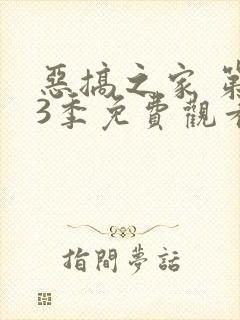 惡搞之家 第
3季免費觀看
指間夢話